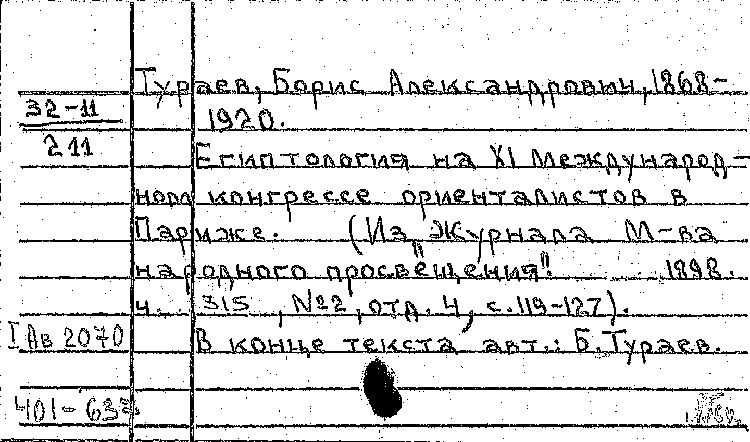 Тураев, Борис Александрович, 1868-
32-11
1920.
211
Египтология на XI Международ-
ном конгрессе ориенталистов в
Париже. (Из „Журнала М-ва
народного просвещения". 1898.
ч. 315, №2, отд. 4, с. 119-127).
I Ав 2070
В конце текста авт.: Б. Тураев.
401-63